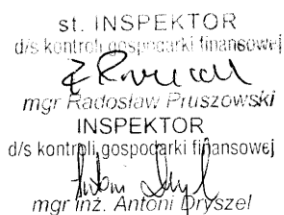 st. INSPEKTOR
d/s kontroli gospodarki finansowej
mgr Radosław Pruszowski
INSPEKTOR
d/s kontroli gospodarki finansowej
mgr inż. Antoni Dryszel